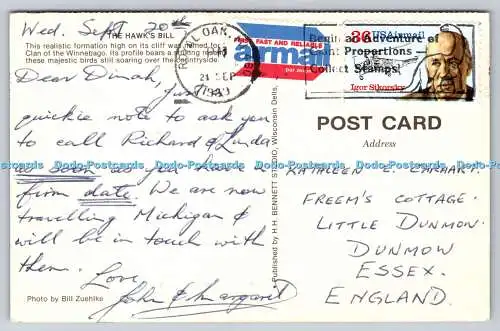 Wed. Sept 20th
THE HAWK'S BILL
This realistic formation high on its cliff was named for a
Clan of the Winnebago. Its profile bears a striking
these majestic birds still soaring over the countryside.
Dear Dinah,
Just
quickie note to ask you
to call Richard & Linda
as soon as you have a
firm date. We are now
travelling Michigan &
will be in touch with
them.
Love
John & Margaret
Photo by Bill Zuehlke
Published by H.H. BENNETT STUDIO, Wisconsin Dells,
ROYAL OAK,
21 SEP
1989
FAST AND RELIABLE
airmail
par avion
36 USAirmail
Igor Sikorsky
Begin an Adventure of
Giant Proportions
Collect Stamps!
POST CARD
Address
KATHLEEN E. EARHART
FREEM'S COTTAGE.
LITTLE DUNMOW.
DUNMOW
ESSEX.
ENGLAND.
Docs-Postcards Docs-Postcards Docs-Postcards Docs-Postcards